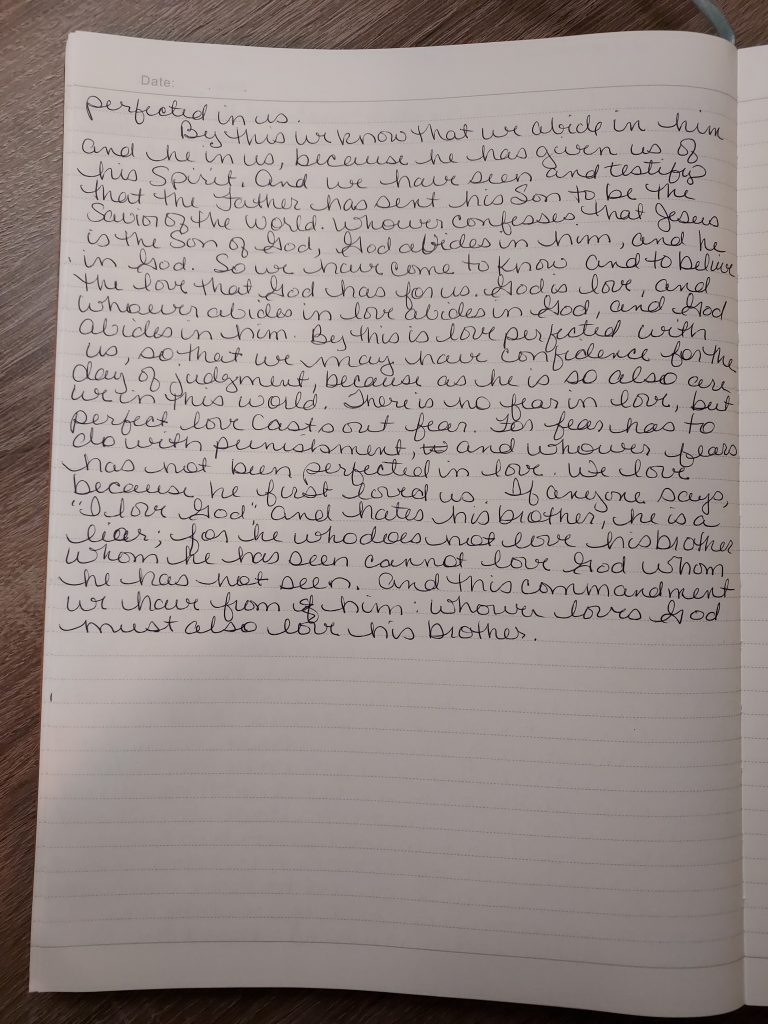 Date:
perfected in us.
By this we know that we abide in him
and he in us, because he has given us of
his Spirit. And we have seen and testify
that the Father has sent his Son to be the
Savior of the world. Whoever confesses that Jesus
is the Son of God, God abides in him, and he
in God. So we have come to know and to believe
the love that God has for us. God is love, and
whoever abides in love abides in God, and God
abides in him. By this is love perfected with
us, so that we may have confidence for the
day of judgment, because as he is so also are
we in this world. There is no fear in love, but
perfect love casts out fear. For fear has to
do with punishment, and whoever fears
has not been perfected in love. We love
because he first loved us. If anyone says,
"I love God" and hates his brother, he is a
liar; for he who does not love his brother
whom he has seen cannot love God whom
he has not seen. And this commandment
we have from him: whoever loves God
must also love his brother.